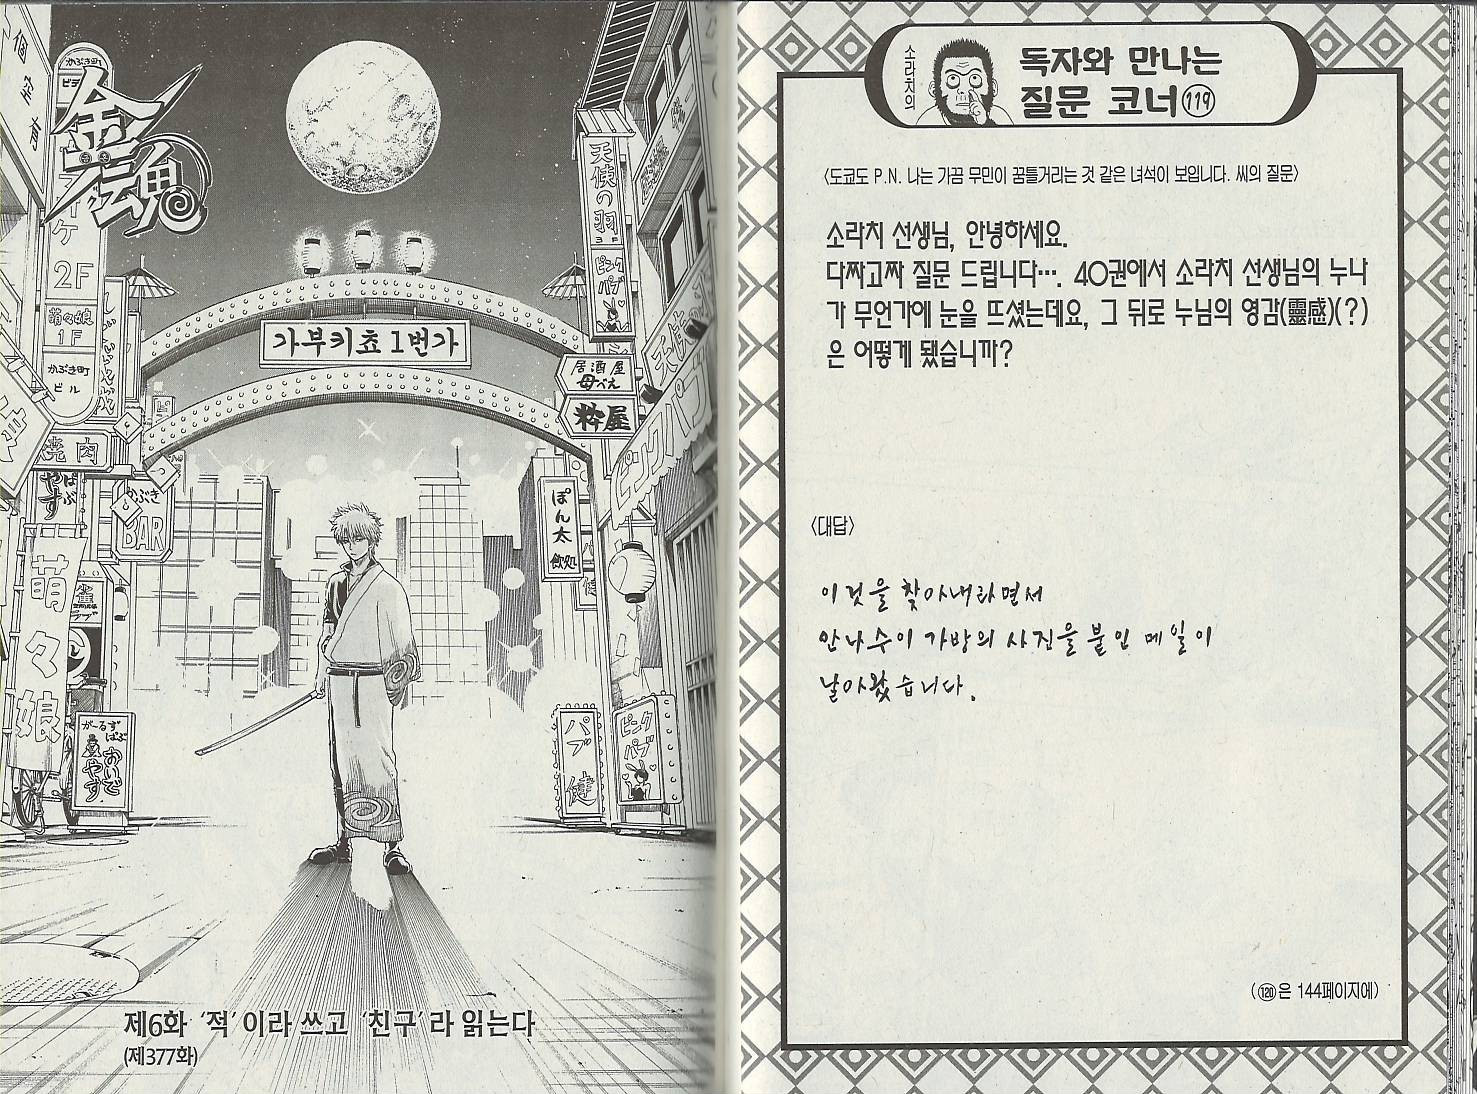 個室有
かぶき町
ビデ
金魂
2F
萌々娘
1F
かぶき町
ビル
焼肉
かぶき
BAR
萌々娘
が〜るず
ばぶ
おいで
やす
天使の羽
ピンク
パブ
가부키쵸 1번가
居酒屋
母べえ
粋屋
ピンクパブ
ぽん太
飲処
パブ
健
ピンク
パブ
제6화 '적'이라 쓰고 '친구'라 읽는다
(제377화)
소라치의
독자와 만나는
질문 코너 119
〈도쿄도 P.N. 나는 가끔 무민이 꿈틀거리는 것 같은 녀석이 보입니다. 씨의 질문〉
소라치 선생님, 안녕하세요.
다짜고짜 질문 드립니다…. 40권에서 소라치 선생님의 누나
가 무언가에 눈을 뜨셨는데요, 그 뒤로 누님의 영감(靈感)(?)
은 어떻게 됐습니까?
〈대답〉
이것을 찾아내라면서
안나수이 가방의 사진을 붙인 메일이
날아왔습니다.
(120은 144페이지에)